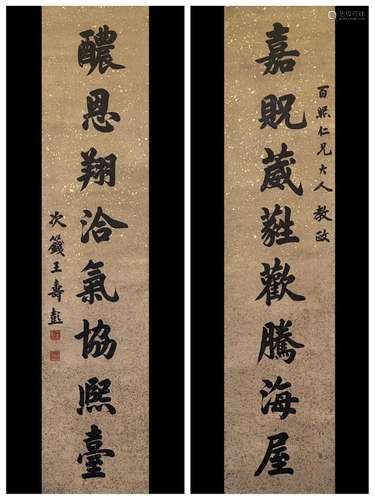 嘉貺葳蕤歡騰海屋
百熙仁兄大人教政
醲恩翔洽氣協熙臺
次籛王壽彭